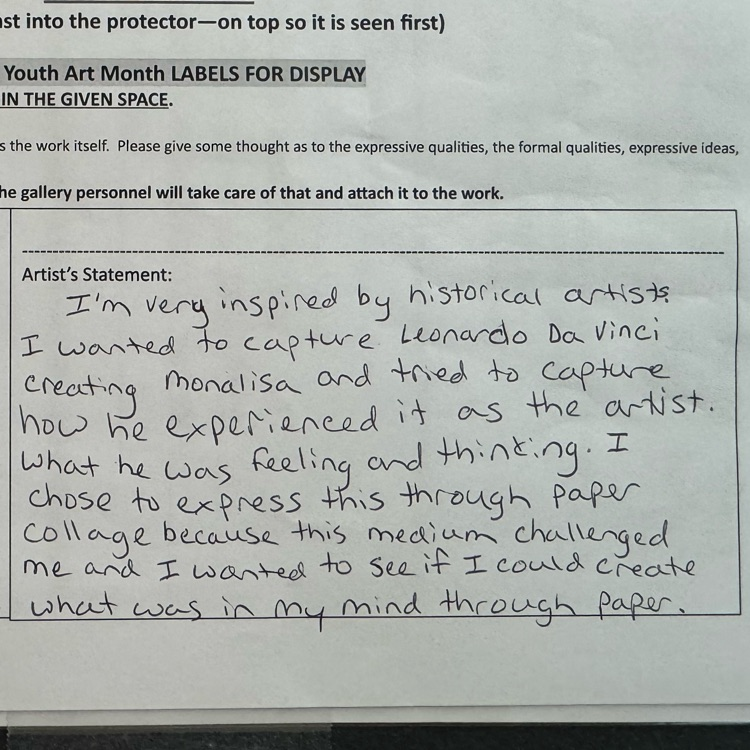 ast into the protector—on top so it is seen first)
Youth Art Month LABELS FOR DISPLAY
IN THE GIVEN SPACE.
s the work itself. Please give some thought as to the expressive qualities, the formal qualities, expressive ideas,
he gallery personnel will take care of that and attach it to the work.
Artist's Statement:
I'm very inspired by historical artists.
I wanted to capture Leonardo Da Vinci
creating Monalisa and tried to capture
how he experienced it as the artist.
What he was feeling and thinking. I
chose to express this through paper
collage because this medium challenged
me and I wanted to see if I could create
what was in my mind through paper.